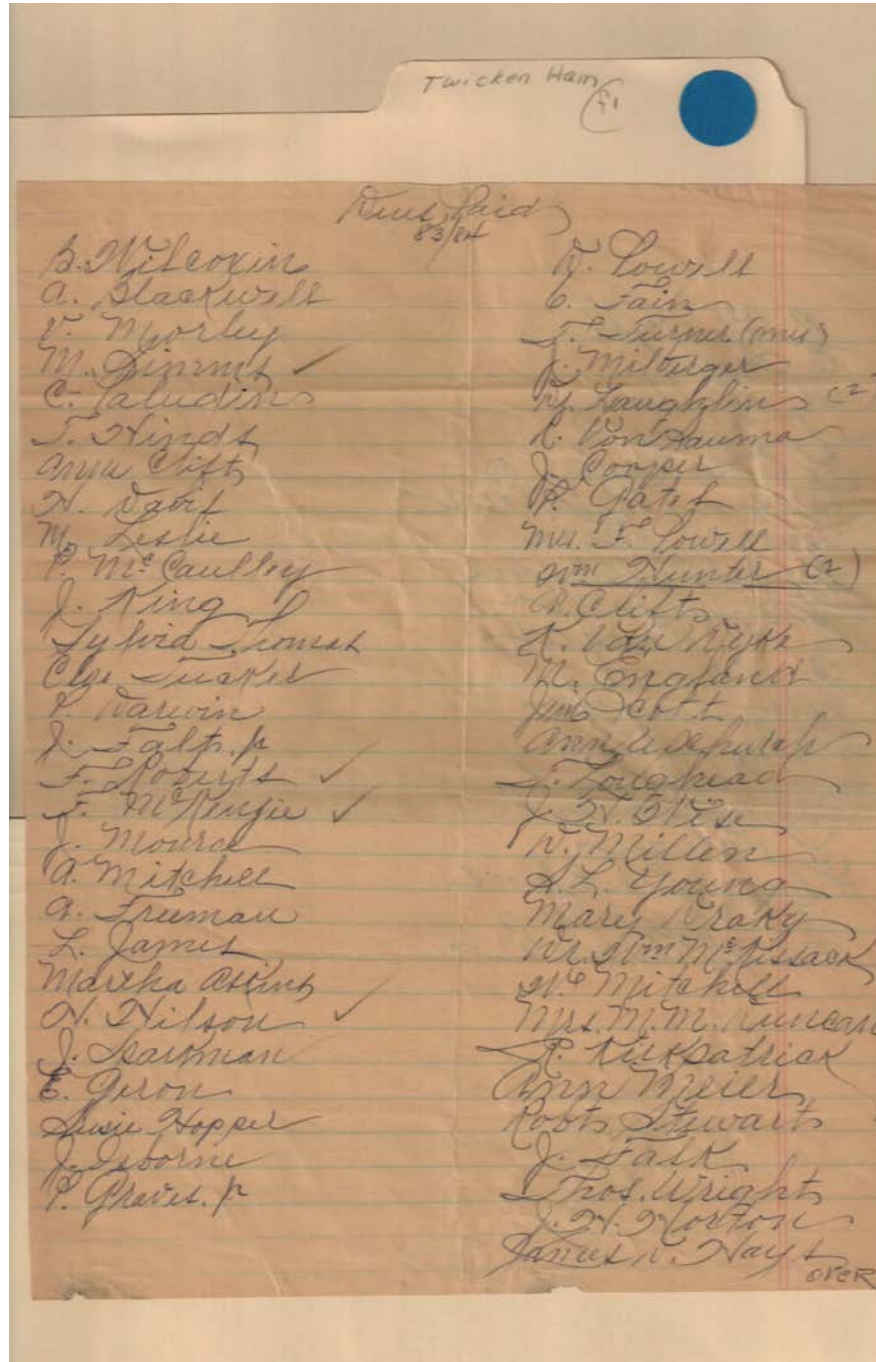 Twicken Ham
Dues Paid
83/84
B. Wilcoxin
A. Blackwell
V. Morley
M. Simms ✓
C. Paludin
T. Hinds
Anne Clift
N. Davis
M. Leslie
P. McCaulley
J. King
Sylvia Thomas
Tucker
P. Darwin
J. Falt
F. Roberts ✓
F. McKenzie ✓
J. Monroe
A. Mitchell
A. Freeman
L. James
Martha Askins
✓
J. Sparkman
E. Geron
Susie Hopper
J. Osborne
P. Graves
Lowell
C. Fain
Turner
J. Milberger
Laughlin (2)
Von
J. Cooper
Gates
Mrs. F. Lowell
Wm Hunter (2)
Clift
K. Van Dyke
M. England
Jim Scott
Ann
Loughead
J. N.
D. Millen
S. L. Young
Mary
Dr. Wm McKissack
Mitchell
Mrs. M. M. Duncan
R. Kirkpatrick
Ann Meier
Roots Stewart
J. Falk
Thos. Wright
J. H. Horton
James D. Hays
OVER